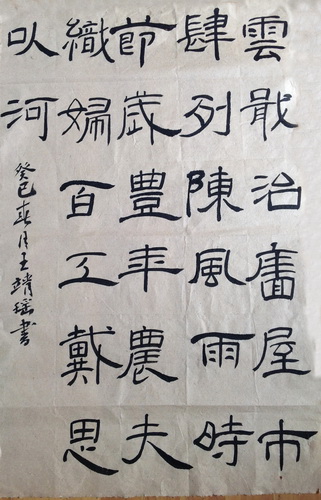 雲散治廧屋市
肆列陳風雨時
節歲豐年農夫
織婦百工戴恩
以河
癸巳春月王靖瑶書